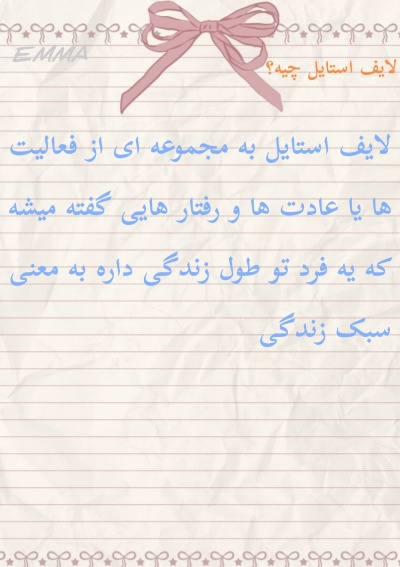 EMMA
لایف استایل چیه؟
لایف استایل به مجموعه ای از فعالیت
ها یا عادت ها و رفتار هایی گفته میشه
که یه فرد تو طول زندگی داره به معنی
سبک زندگی